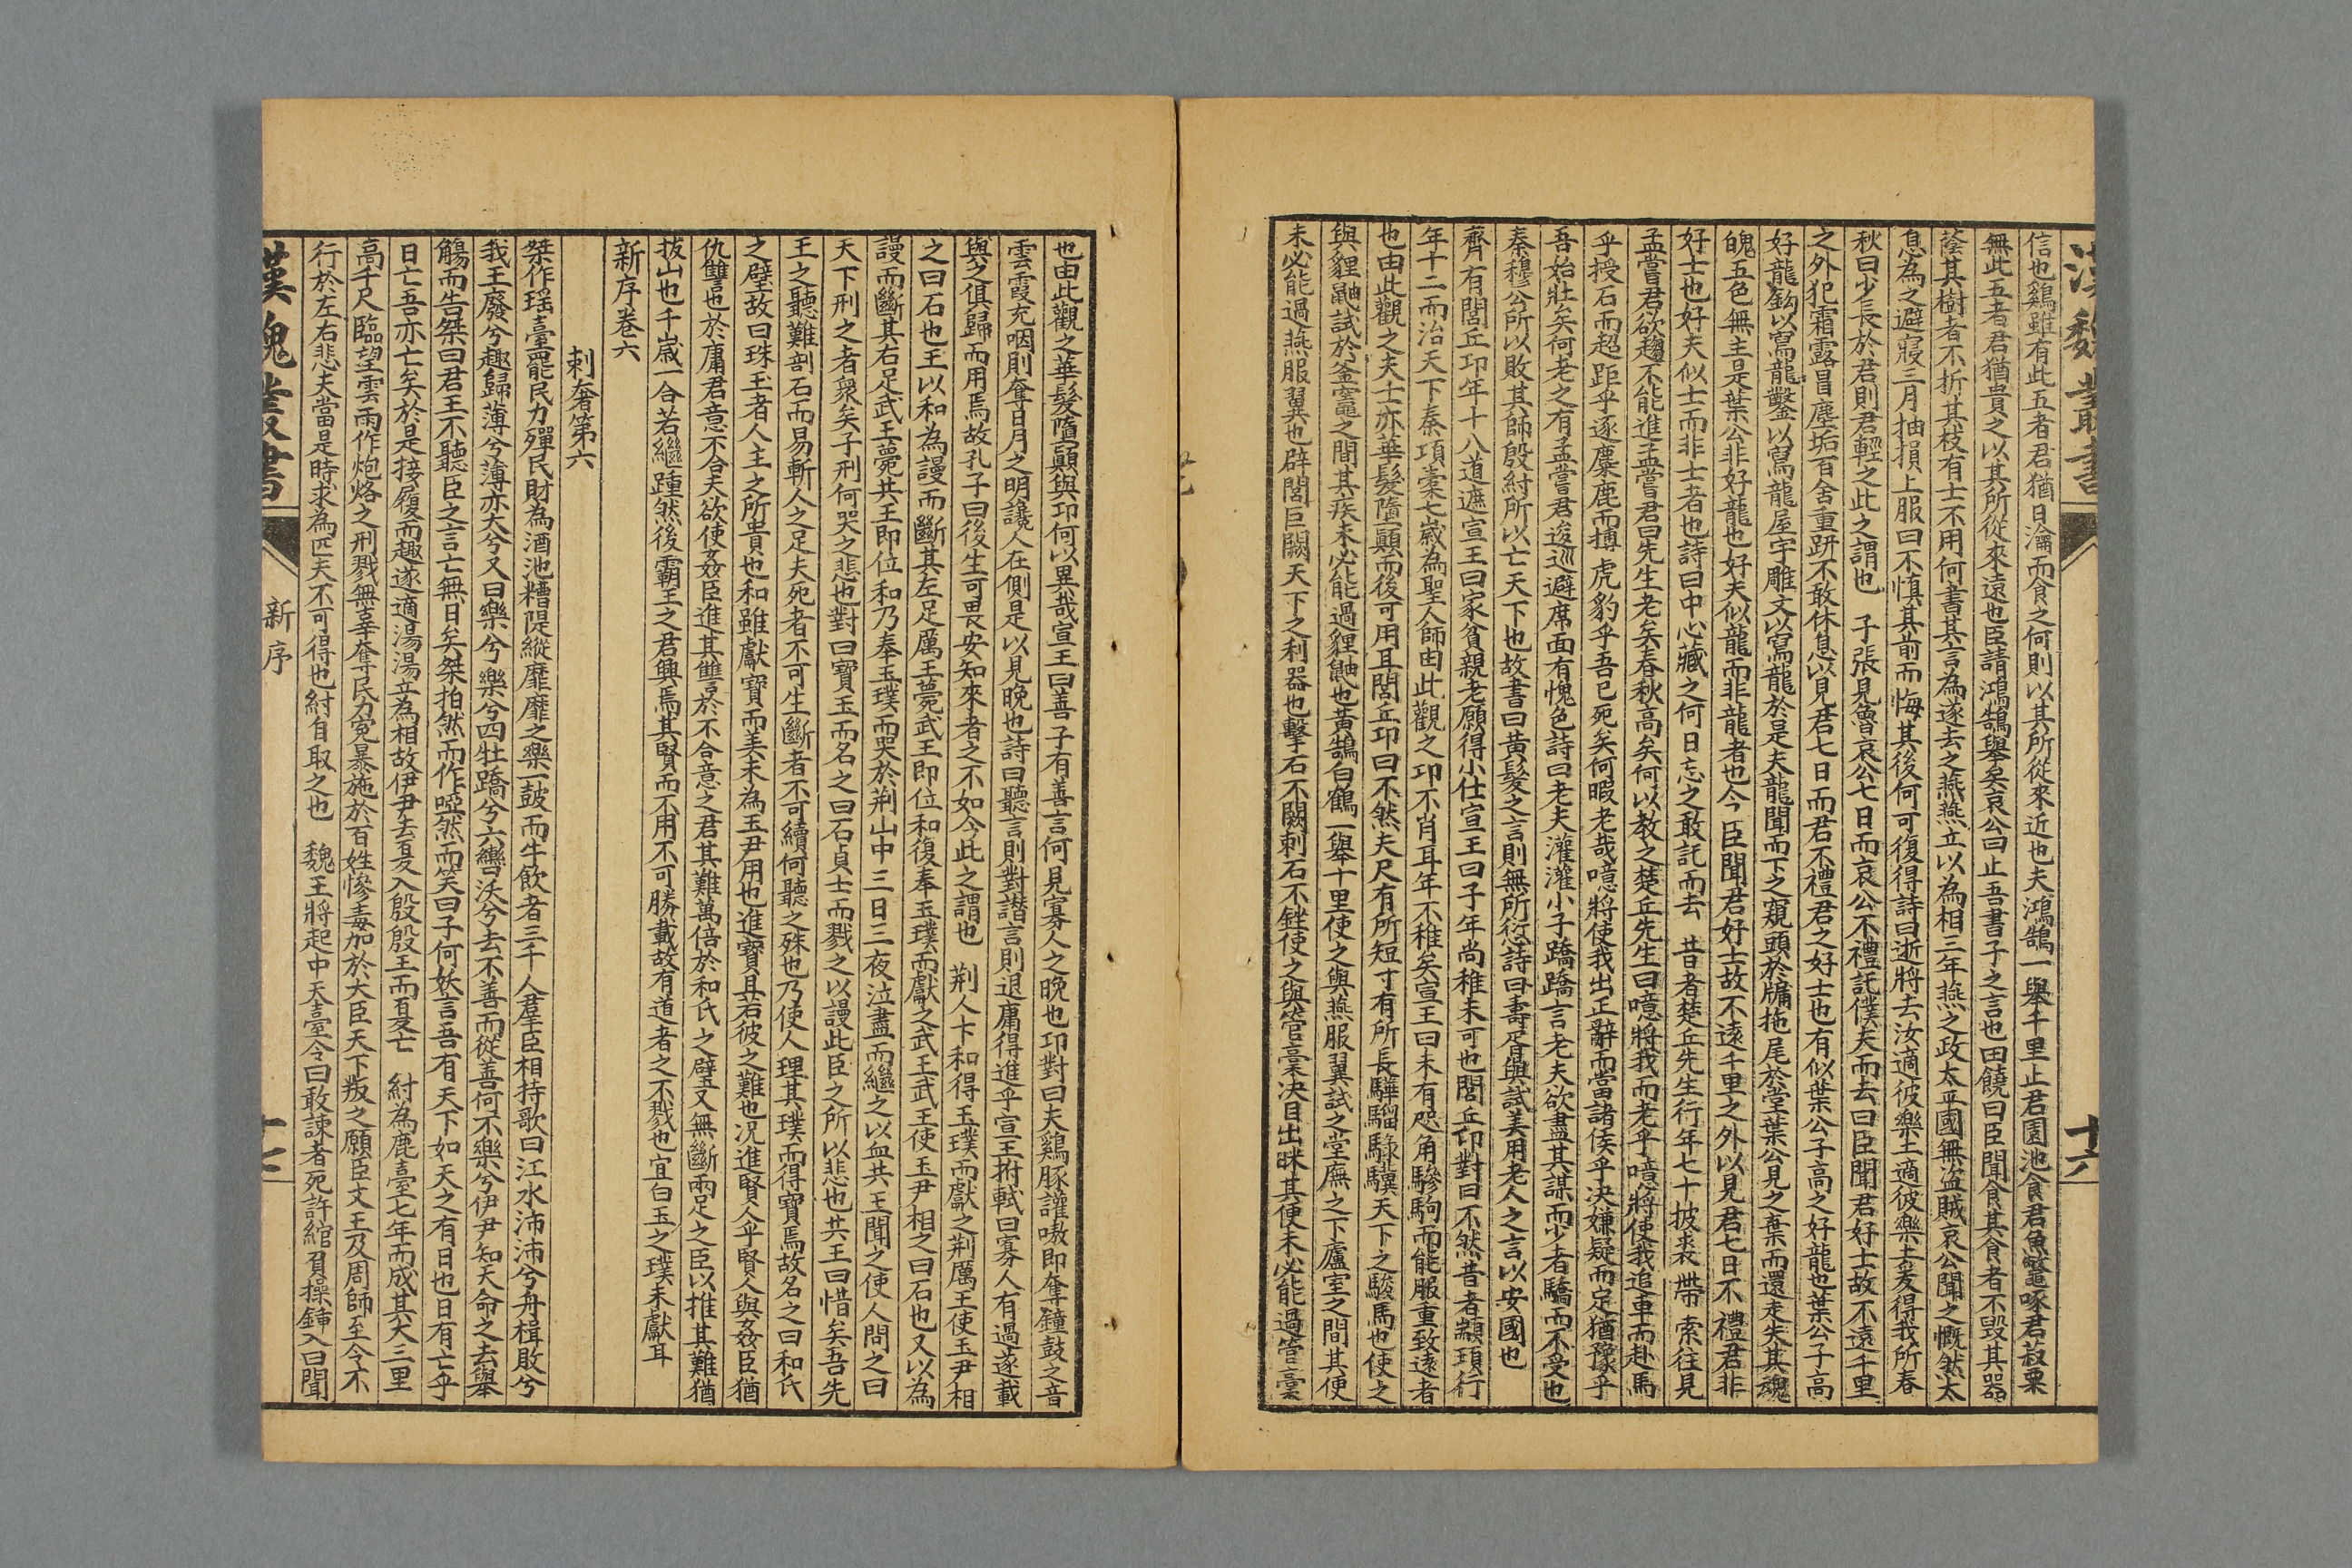 漢魏叢書
十六
信也鷄雖有此五者君猶日瀹而食之何則以其所從來近也夫鴻鵠一舉千里止君園池食君魚鼈啄君菽粟
無此五者君猶貴之以其所從來遠也臣請鴻鵠舉矣哀公曰止吾書子之言也田饒曰臣聞食其食者不毀其器
蔭其樹者不折其枝有士不用何書其言為遂去之燕燕立以為相三年燕之政太平國無盜賊哀公聞之慨然太
息為之避寢三月抽損上服曰不慎其前而悔其後何可復得詩曰逝將去汝適彼樂土適彼樂土爰得我所春
秋曰少長於君則君輕之此之謂也　子張見魯哀公七日而哀公不禮託僕夫而去曰臣聞君好士故不遠千里
之外犯霜露冒塵垢百舍重趼不敢休息以見君七日而君不禮君之好士也有似葉公子高之好龍也葉公子高
好龍鉤以寫龍鑿以寫龍屋宇雕文以寫龍於是夫龍聞而下之窺頭於牖拖尾於堂葉公見之棄而還走失其魂
魄五色無主是葉公非好龍也好夫似龍而非龍者也今臣聞君好士故不遠千里之外以見君七日不禮君非
好士也好夫似士而非士者也詩曰中心藏之何日忘之敢託而去　昔者楚丘先生行年七十披裘帶索往見
孟嘗君欲趨不能進孟嘗君曰先生老矣春秋高矣何以教之楚丘先生曰噫將我而老乎噫將使我追車而赴馬
乎投石而超距乎逐麋鹿而搏虎豹乎吾已死矣何暇老哉噫將使我出正辭而當諸侯乎決嫌疑而定猶豫乎
吾始壯矣何老之有孟嘗君逡巡避席面有愧色詩曰老夫灌灌小子蹻蹻言老夫欲盡其謀而少者驕而不受也
秦穆公所以敗其師殷紂所以亡天下也故書曰黄髮之言則無所愆詩曰壽胥與試美用老人之言以安國也
齊有閭丘卭年十八道遮宣王曰家貧親老願得小仕宣王曰子年尚稚未可也閭丘卭對曰不然昔者顓頊行
年十二而治天下秦項橐七歲為聖人師由此觀之卭不肖耳年不稚矣宣王曰未有咫角驂駒而能服重致遠者
也由此觀之夫士亦華髮墮顛而後可用耳閭丘卭曰不然夫尺有所短寸有所長驊騮騄驥天下之駿馬也使之
與貍鼬試於釜竈之間其疾未必能過貍鼬也黄鵠白鶴一舉千里使之與燕服翼試之堂廡之下廬室之間其便
未必能過燕服翼也辟閭巨闕天下之利器也擊石不闕刺石不銼使之與管槀決目出眯其便未必能過管槀
也由此觀之華髮墮顛與卭何以異哉宣王曰善子有善言何見寡人之晚也卭對曰夫鷄豚讙嗷即奪鐘鼓之音
雲霞充咽則奪日月之明讒人在側是以見晚也詩曰聽言則對譖言則退庸得進乎宣王拊軾曰寡人有過遂載
與之俱歸而用焉故孔子曰後生可畏安知來者之不如今此之謂也　荆人卞和得玉璞而獻之荆厲王使玉尹相
之曰石也王以和為謾而斷其左足厲王薨武王即位和復奉玉璞而獻之武王武王使玉尹相之曰石也又以為
謾而斷其右足武王薨共王即位和乃奉玉璞而哭於荆山中三日三夜泣盡而繼之以血共王聞之使人問之曰
天下刑之者衆矣子刑何哭之悲也對曰寶玉而名之曰石貞士而戮之以謾此臣之所以悲也共王曰惜矣吾先
王之聽難剖石而易斬人之足夫死者不可生斷者不可續何聽之殊也乃使人理其璞而得寶焉故名之曰和氏
之璧故曰珠玉者人主之所貴也和雖獻寶而美未為玉尹用也進寶且若彼之難也況進賢人乎賢人與姦臣猶
仇讐也於庸君意不合夫欲使姦臣進其讐於不合意之君其難萬倍於和氏之璧又無斷兩足之臣以推其難猶
拔山也千歲一合若繼踵然後霸王之君興焉其賢而不用不可勝載故有道者之不戮也宜白玉之璞未獻耳
新序卷六
刺奢第六
桀作瑤臺罷民力殫民財為酒池糟隄縱靡靡之樂一鼓而牛飲者三千人羣臣相持歌曰江水沛沛兮舟楫敗兮
我王廢兮趣歸薄兮薄亦大兮又曰樂兮樂兮四牡蹻兮六轡沃兮去不善而從善何不樂兮伊尹知天命之去舉
觴而告桀曰君王不聽臣之言亡無日矣桀拍然而作啞然而笑曰子何妖言吾有天下如天之有日也日有亡乎
日亡吾亦亡矣於是接履而趣遂適湯湯立為相故伊尹去夏入殷殷王而夏亡　紂為鹿臺七年而成其大三里
高千尺臨望雲雨作炮烙之刑戮無辜奪民力寃暴施於百姓慘毒加於大臣天下叛之願臣文王及周師至令不
行於左右悲夫當是時求為匹夫不可得也紂自取之也　魏王將起中天臺令曰敢諫者死許綰負操鍤入曰聞
漢魏叢書
新序
十七